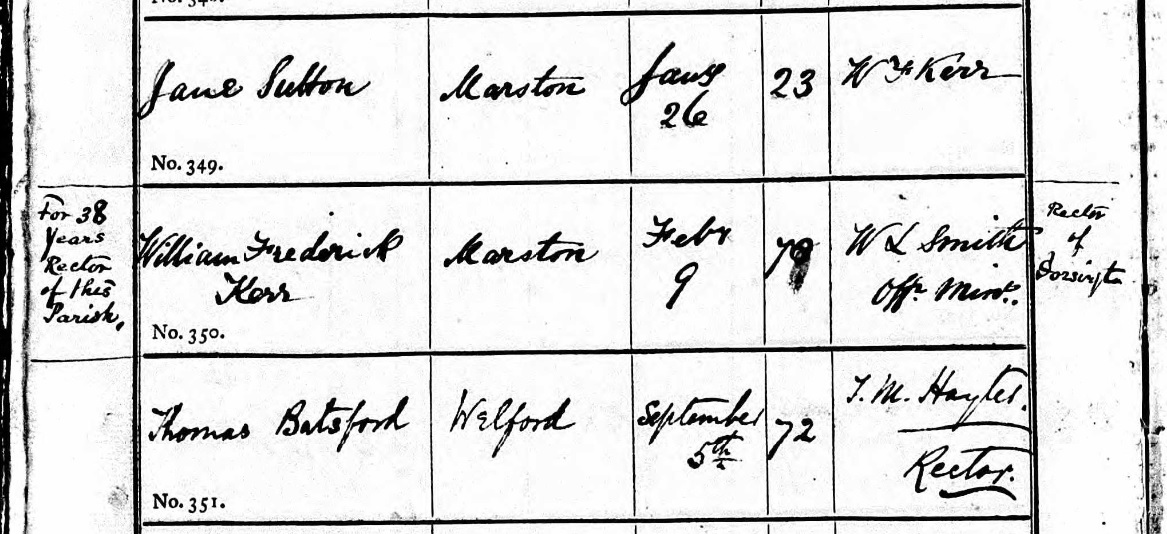 Jane Sutton Marston Jany 26 23 W F Kerr
No. 349.
For 38 Years Rector of this Parish.
William Frederick Kerr Marston Feby 9 W L Smith Offg Minr.
Rector of Dorsington
No. 350.
Thomas Batsford Welford September 5th 72 T. M. Hayter. Rector.
No. 351.